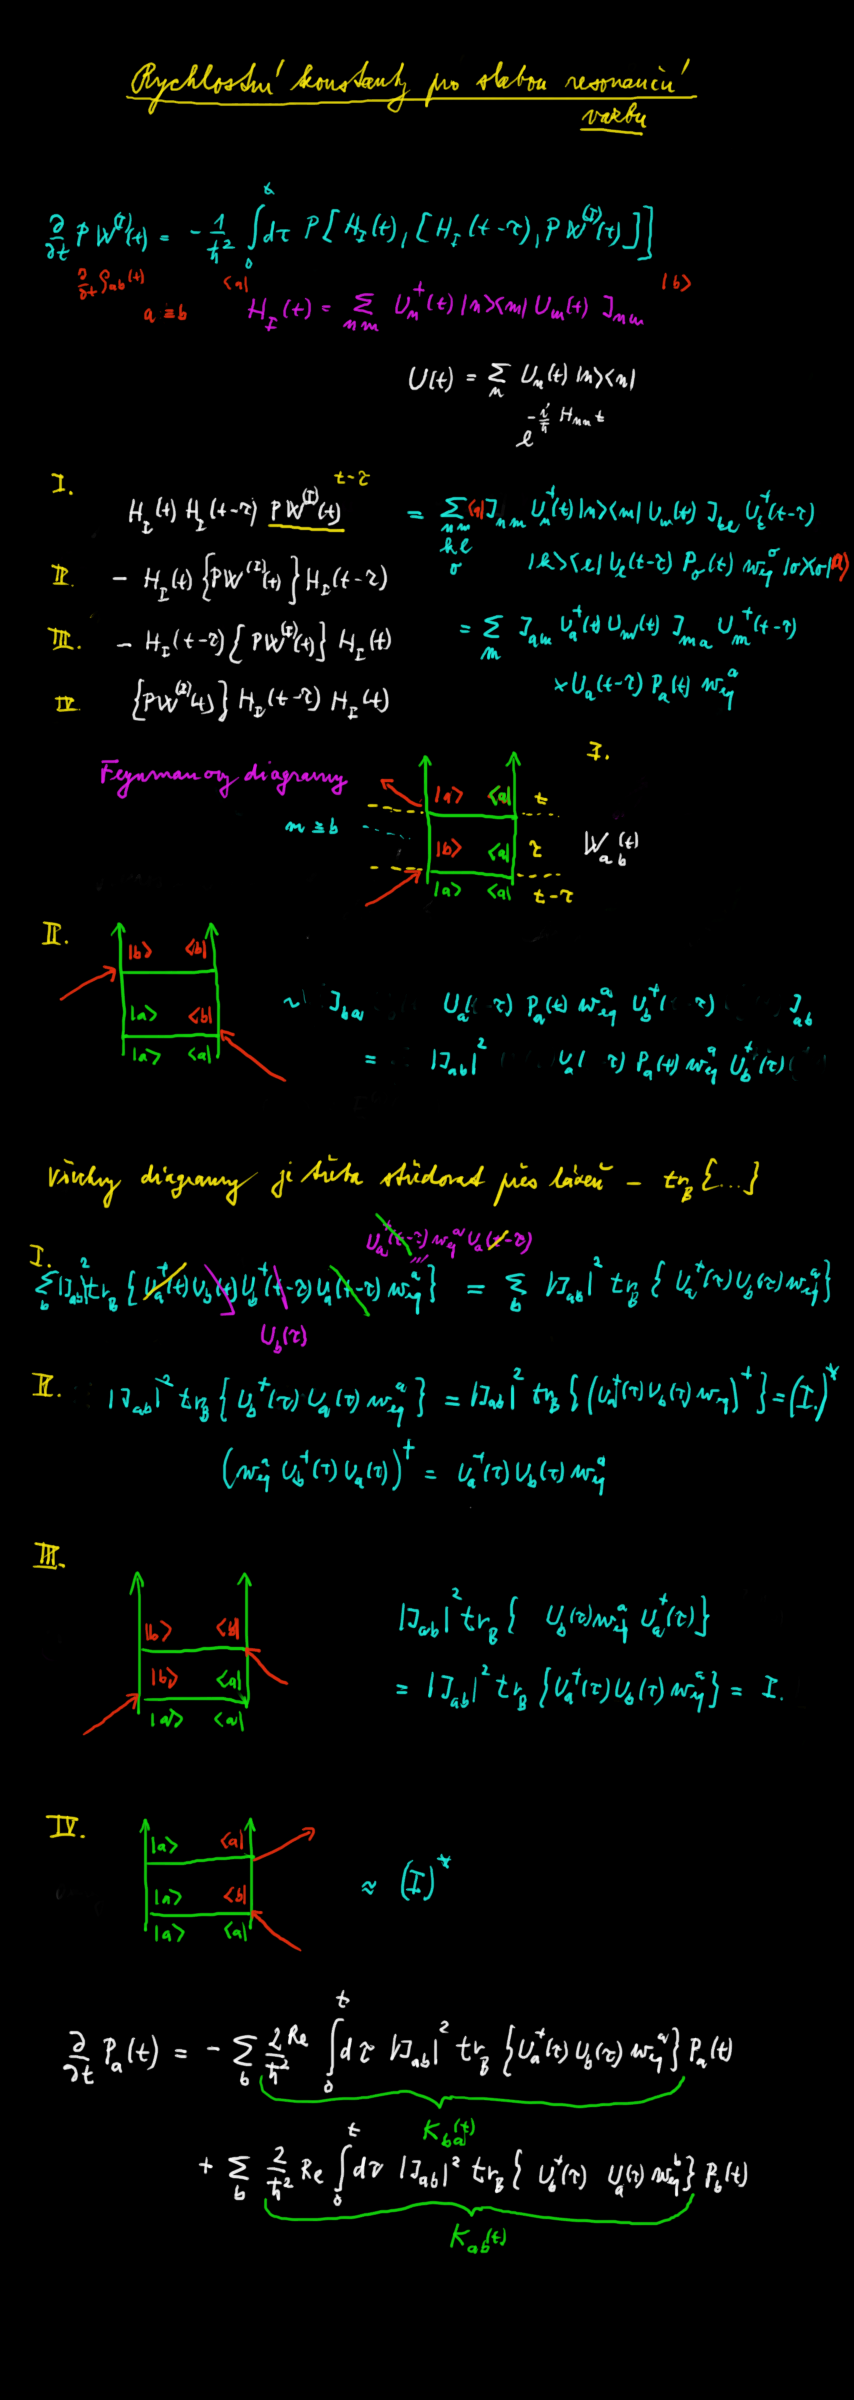 Rychlostní konstanty pro slabou resonanční
vazbu
∂/∂t P W^(I)(t) = - 1/ħ² ∫₀^t dτ P [ H_I(t), [ H_I(t-τ), P W^(I)(t) ] ]
∂/∂t ρ_ab(t) <a| |b>
a ≡ b H_I(t) = Σ_nm U_n^+(t) |n><m| U_m(t) J_nm
U(t) = Σ_n U_n(t) |n><n|
e^{-i/ħ H_nn t}
I. H_I(t) H_I(t-τ) P W^(I)(t) t-τ = Σ_{nm kl o} <a| J_nm U_n^+(t) |n><m| U_m(t) J_kl U_k^+(t-τ)
|k><l| U_l(t-τ) P_o(t) w_eq^o |o><o|a>
II. - H_I(t) {P W^(I)(t)} H_I(t-τ)
III. - H_I(t-τ) { P W^(I)(t) } H_I(t) = Σ_m J_am U_a^+(t) U_m(t) J_ma U_m^+(t-τ)
IV {P W^(I)(t)} H_I(t-τ) H_I(t) × U_a(t-τ) P_a(t) w_eq^a
I.
Feynmanovy diagramy |a> <a| t
m ≡ b |b> <a| τ W_ab(t)
|a> <a| t-τ
II. |b> <b|
|a> <b| ~ J_ba U_a( τ) P_a(t) w_eq^a U_b^+( τ) J_ab
|a> <a| = |J_ab|² U_a( τ) P_a(t) w_eq^a U_b^+(τ)
všechny diagramy je třeba středovat přes lázeň - tr_B {...}
U_a^+(t-τ) w_eq^a U_a(t-τ)
I. Σ_b |J_ab|² tr_B { U_a^+(t) U_b(t) U_b^+(t-τ) U_a(t-τ) w_eq^a } = Σ_b |J_ab|² tr_B { U_a^+(τ) U_b(τ) w_eq^a }
U_b(τ)
II. |J_ab|² tr_B { U_b^+(τ) U_a(τ) w_eq^a } = |J_ab|² tr_B { (U_a^+(τ) U_b(τ) w_eq)^+ } = (I.)*
(w_eq^a U_b^+(τ) U_a(τ))^+ = U_a^+(τ) U_b(τ) w_eq^a
III.
|b> <b| |J_ab|² tr_B { U_b(τ) w_eq^a U_a^+(τ) }
|b> <a| = |J_ab|² tr_B { U_a^+(τ) U_b(τ) w_eq^a } = I.
|a> <a|
IV. |a> <a|
|a> <b| ≈ (I.)*
|a> <a|
∂/∂t P_a(t) = - Σ_b 2/ħ² Re ∫₀^t dτ |J_ab|² tr_B { U_a^+(τ) U_b(τ) w_eq^a } P_a(t)
K_ba(t)
+ Σ_b 2/ħ² Re ∫₀^t dτ |J_ab|² tr_B { U_b^+(τ) U_a(τ) w_eq^b } P_b(t)
K_ab(t)